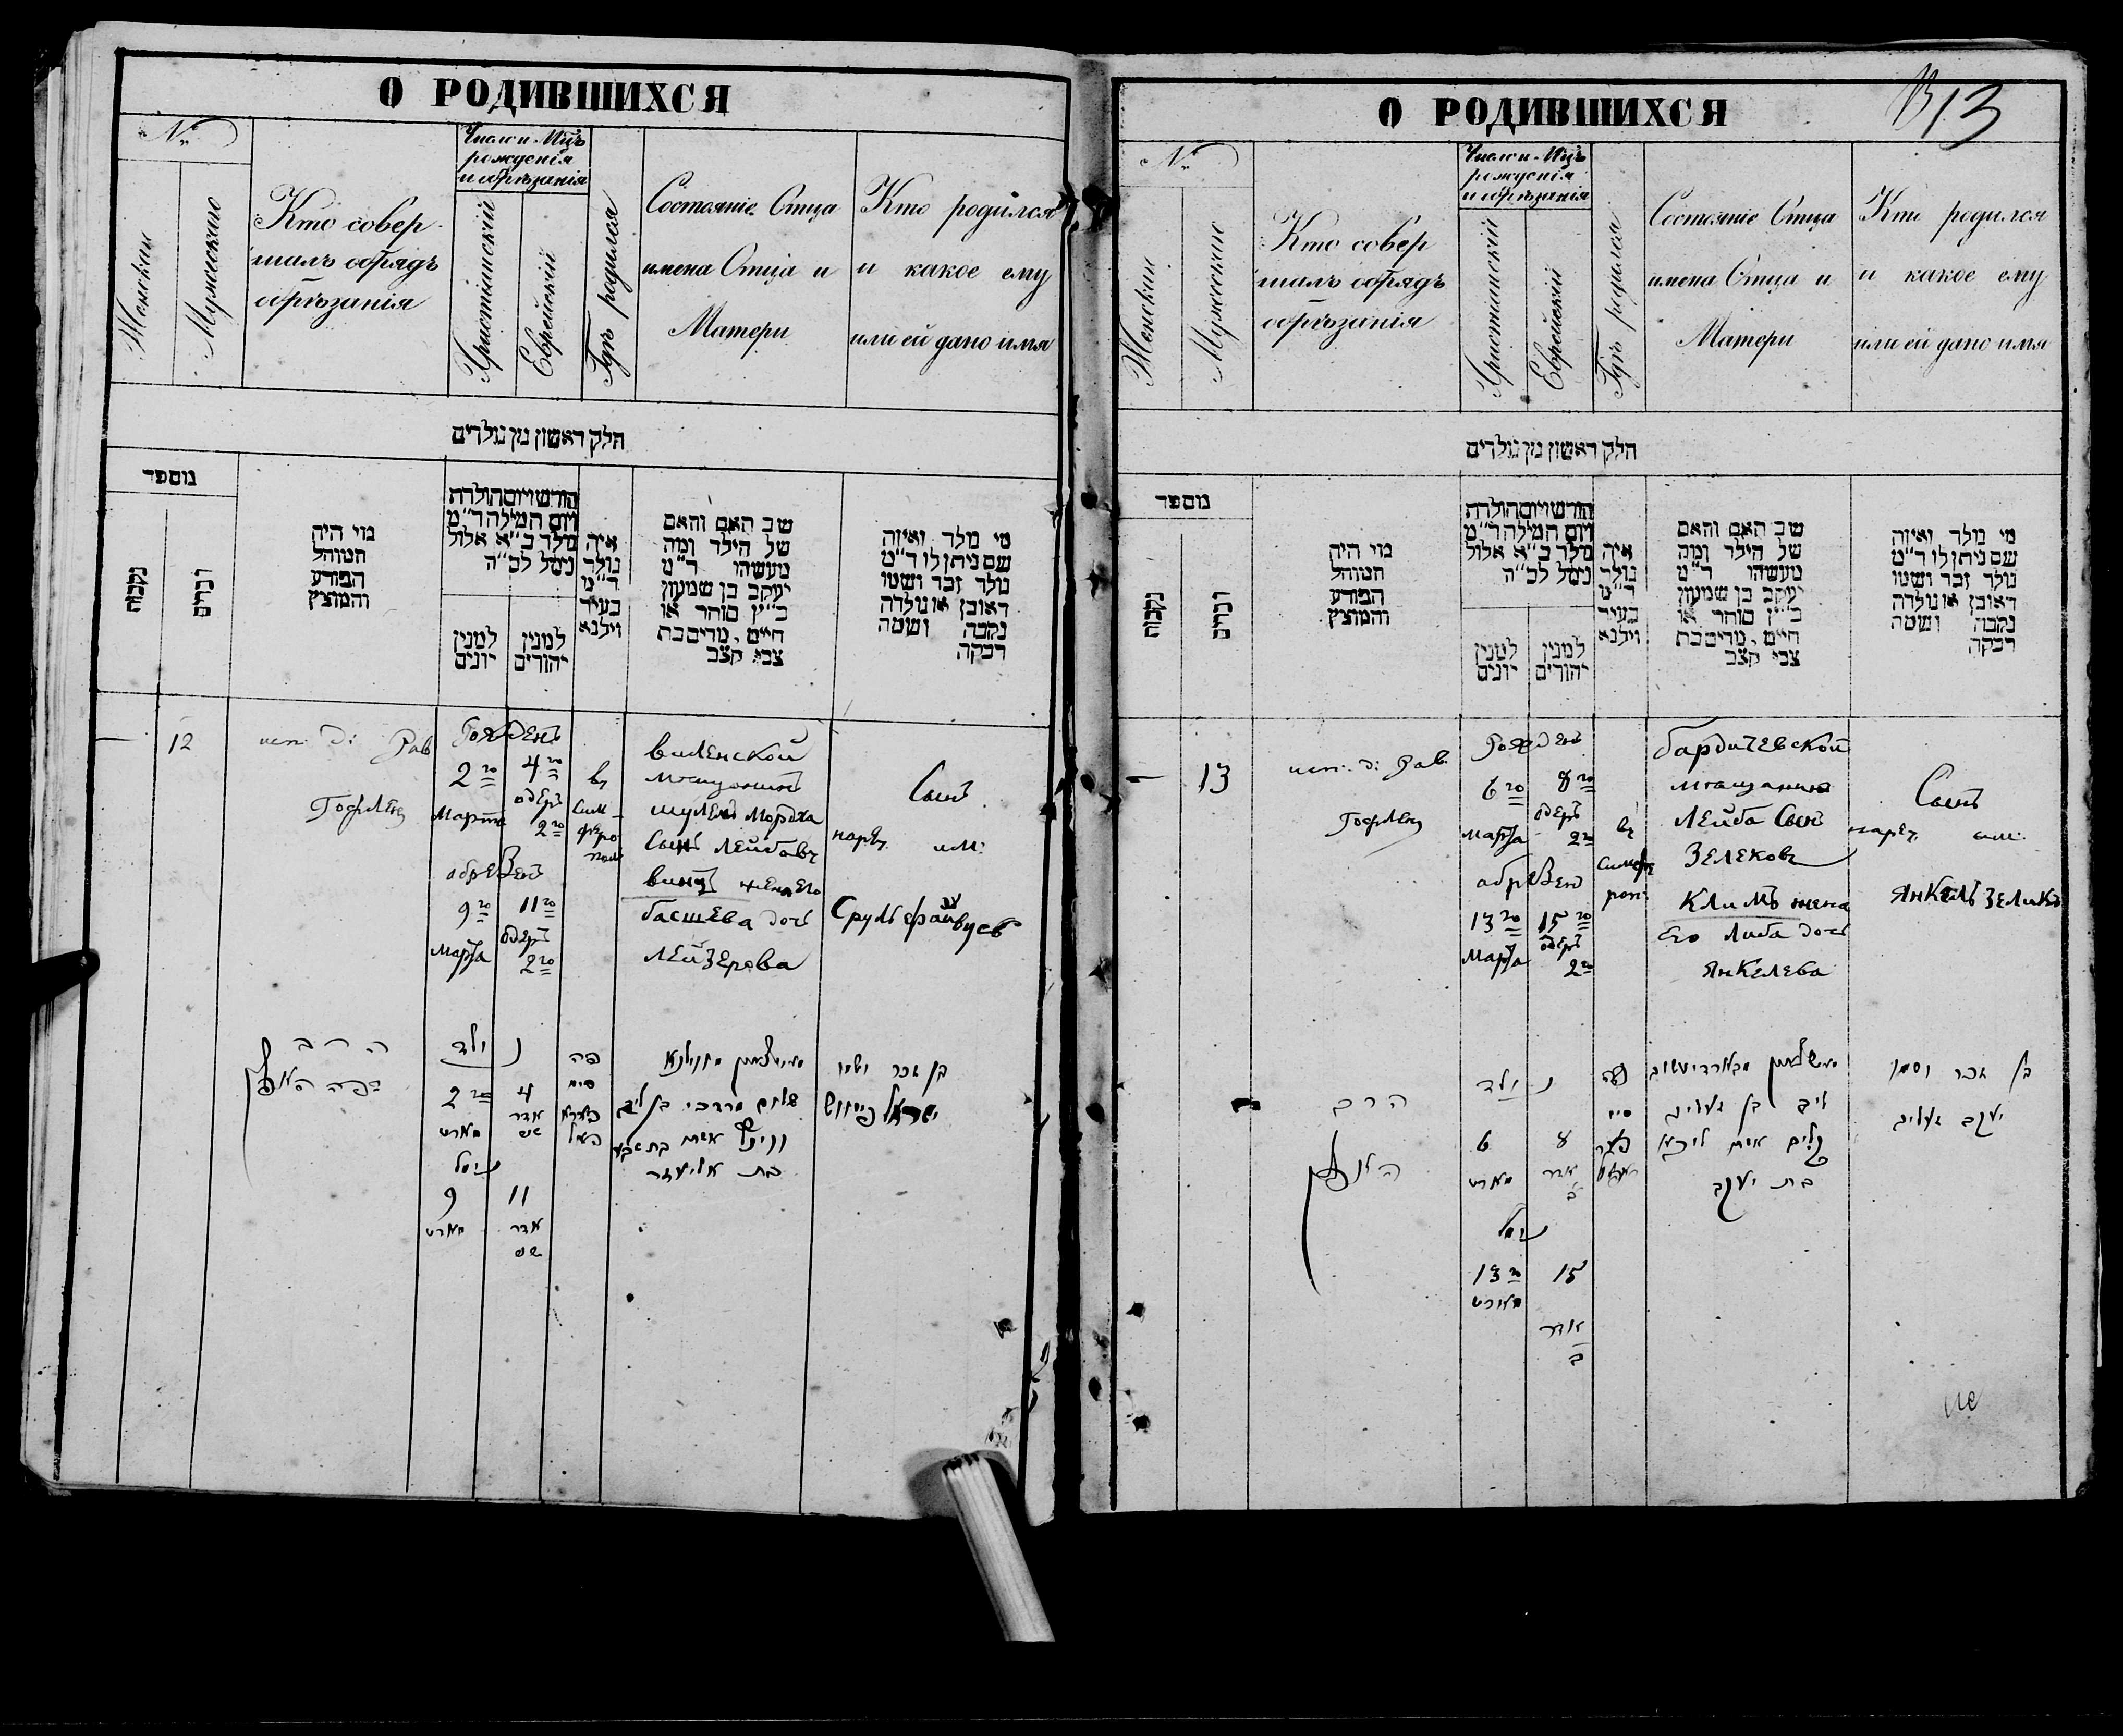 О РОДИВШИХСЯ
№
Женскии
Мужескио
Кто совер
шалъ обрядъ
обрѣзанія
Число и Мцъ
рожденія
и обрѣзанія
Христіанскій
Еврейскій
Гдѣ родился
Состояніе Отца
имена Отца и
Матери
Кто родился
и какое ему
или ей дано имя
חלק ראשון מן נולדים
מספר
נקבות
זכרים
מי היה
המוהל
הפורע
והמוצץ
חודש ויום הולדת
ויום המילה ד"מ
נולד כ"א אלול
נימל לכ"ה
למנין
יונים
למנין
יהודים
איה
נולד
ד"מ
בעיר
ווילנא
שב האם והאם
של הילד ומה
מעשהו ד"מ
יעקב בן שמעון
כ"ץ סוחר או
חייט, מרים בת
צבי קצב
מי נולד ואיזה
שם ניתן לו ד"מ
נולד זכר ושמו
ראובן או נולדה
נקבה ושמה
רבקה
12
исп. д: Рав
Гофлен
Рожденъ
2го 4го
Марта адеръ 2го
обрезенъ
9го 11го
Марта адеръ 2го
въ
Сим-
феро
пол
виленской
мещанинъ
шулемъ мордха
Сынъ Лейбовъ
винц жена его
басшева дочь
Лейзерова
Сынъ
нареч. им:
Сруль файвусъ
הרב
נולד
2го 4
מארט אדר שני
נימל
9 11
מארט אדר שני
פה
סימ
פערא
פאל
שלום מרדכי בן ליב
ווינץ אשתו בת שבע
בת אליעזר
בן זכר ושמו
ישראל פייוויש
О РОДИВШИХСЯ
13
№
Женскии
Мужескио
Кто совер
шалъ обрядъ
обрѣзанія
Число и Мцъ
рожденія
и обрѣзанія
Христіанскій
Еврейскій
Гдѣ родился
Состояніе Отца
имена Отца и
Матери
Кто родился
и какое ему
или ей дано имя
חלק ראשון מן נולדים
מספר
נקבות
זכרים
מי היה
המוהל
הפורע
והמוצץ
חודש ויום הולדת
ויום המילה ד"מ
נולד כ"א אלול
נימל לכ"ה
למנין
יונים
למנין
יהודים
איה
נולד
ד"מ
בעיר
ווילנא
שב האם והאם
של הילד ומה
מעשהו ד"מ
יעקב בן שמעון
כ"ץ סוחר או
חייט, מרים בת
צבי קצב
מי נולד ואיזה
שם ניתן לו ד"מ
נולד זכר ושמו
ראובן או נולדה
נקבה ושמה
רבקה
13
исп. д: Рав.
Гофлен
Рожденъ
6го 8го
Марта адеръ 2го
обрезен
13го 15го
Марта адеръ 2го
въ
Симфе
роп:
бардичевской
мещанинъ
Лейба Сынъ
Зелековъ
Климъ жена
его Либа дочь
Янкелева
Сынъ
нареч. им:
Янкель Зеликъ
הרב
נולד
6 8
מארט אדר ב
נימל
13го 15
מארט
אדר
ב
פה
סימ
ליב בן זעליג
קלים אשתו ליבא
בת יעקב
בן זכר ושמו
יעקב זעליג